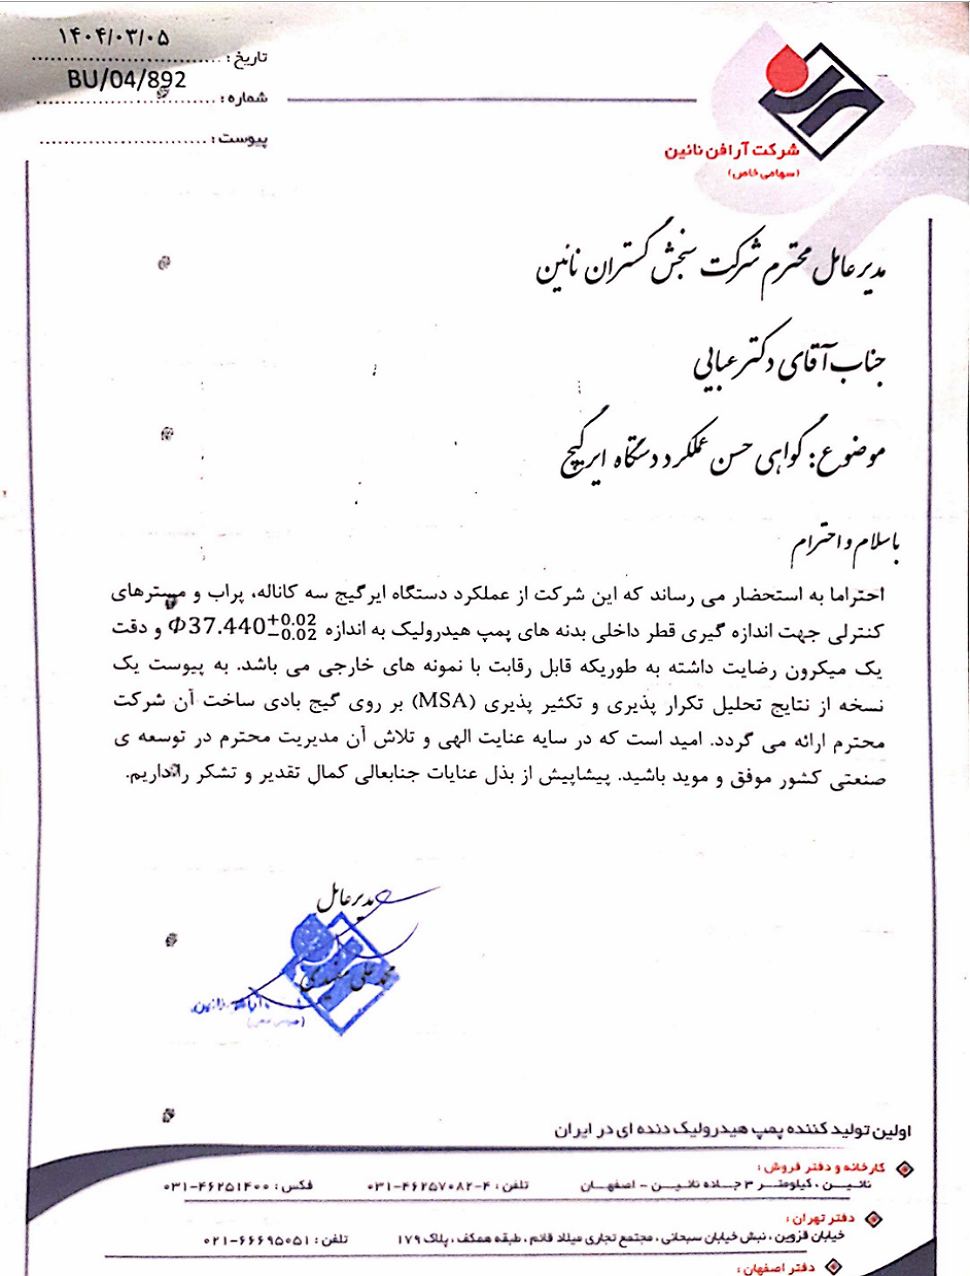 تاریخ : ۱۴۰۴/۰۳/۰۵
شماره : BU/04/892
پیوست :
شرکت آرافن نائین
(سهامی خاص)
مدیر عامل محترم شرکت سنجش گستران نائین
جناب آقای دکتر عبایی
موضوع: گواهی حسن عملکرد دستگاه ایرگیج
باسلام و احترام
احتراما به استحضار می رساند که این شرکت از عملکرد دستگاه ایرگیج سه کاناله، پراب و مسترهای
کنترلی جهت اندازه گیری قطر داخلی بدنه های پمپ هیدرولیک به اندازه Φ37.440+0.02−0.02 و دقت
یک میکرون رضایت داشته به طوریکه قابل رقابت با نمونه های خارجی می باشد. به پیوست یک
نسخه از نتایج تحلیل تکرار پذیری و تکثیر پذیری (MSA) بر روی گیج بادی ساخت آن شرکت
محترم ارائه می گردد. امید است که در سایه عنایت الهی و تلاش آن مدیریت محترم در توسعه ی
صنعتی کشور موفق و موید باشید. پیشاپیش از بذل عنایات جنابعالی کمال تقدیر و تشکر را داریم.
مدیر عامل
محمد علی
اولین تولید کننده پمپ هیدرولیک دنده ای در ایران
کارخانه و دفتر فروش :
نائین ، کیلومتر ۳ جاده نائین - اصفهان تلفن : ۴-۴۶۲۵۷۰۸۲-۰۳۱ فکس : ۴۶۲۵۱۴۰۰-۰۳۱
دفتر تهران :
خیابان قزوین ، نبش خیابان سبحانی ، مجتمع تجاری میلاد قائم ، طبقه همکف ، پلاک ۱۷۹ تلفن : ۶۶۶۹۵۰۵۱-۰۲۱
دفتر اصفهان :